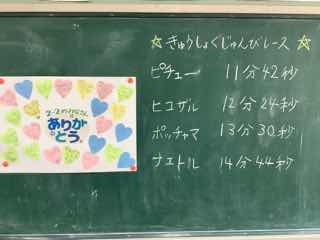 ☆きゅうしょくじゅんびレース☆
ピチュー 11分42秒
ヒコザル 12分24秒
ポッチャマ 13分30秒
ナエトル 14分44秒
ありが
とう